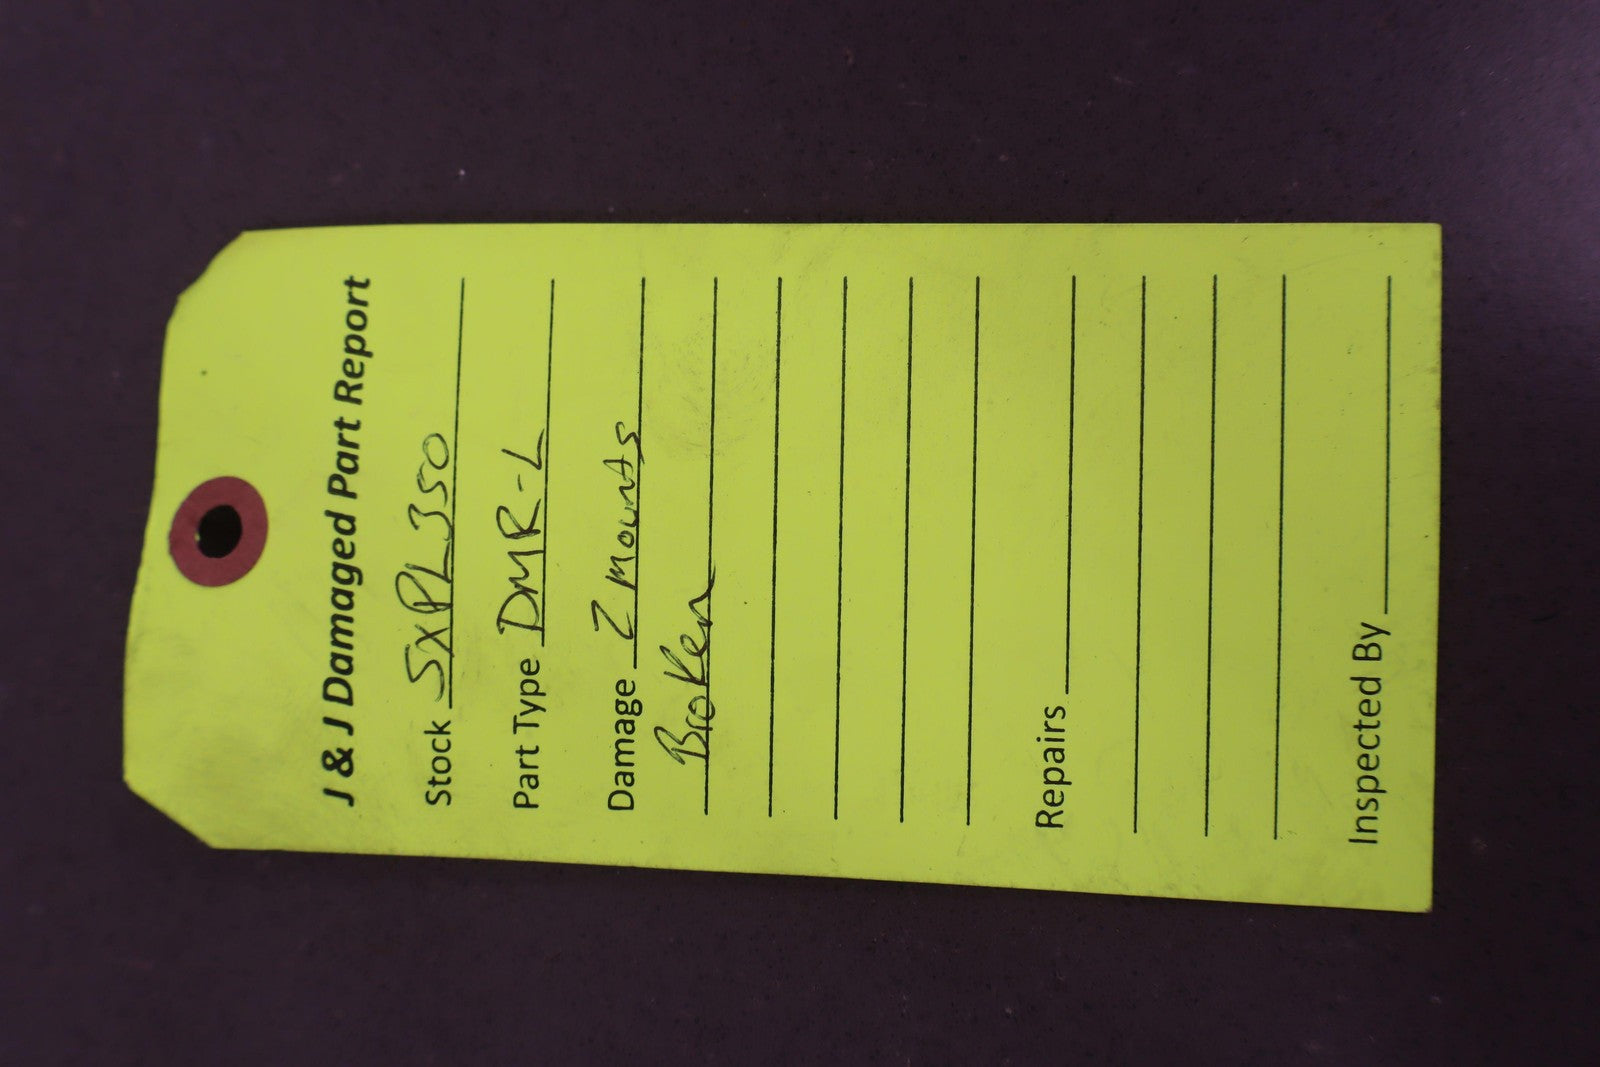 J & J Damaged Part Report
Stock SXPL350
Part Type DMR-L
Damage 2 mounts
Broken
Repairs
Inspected By